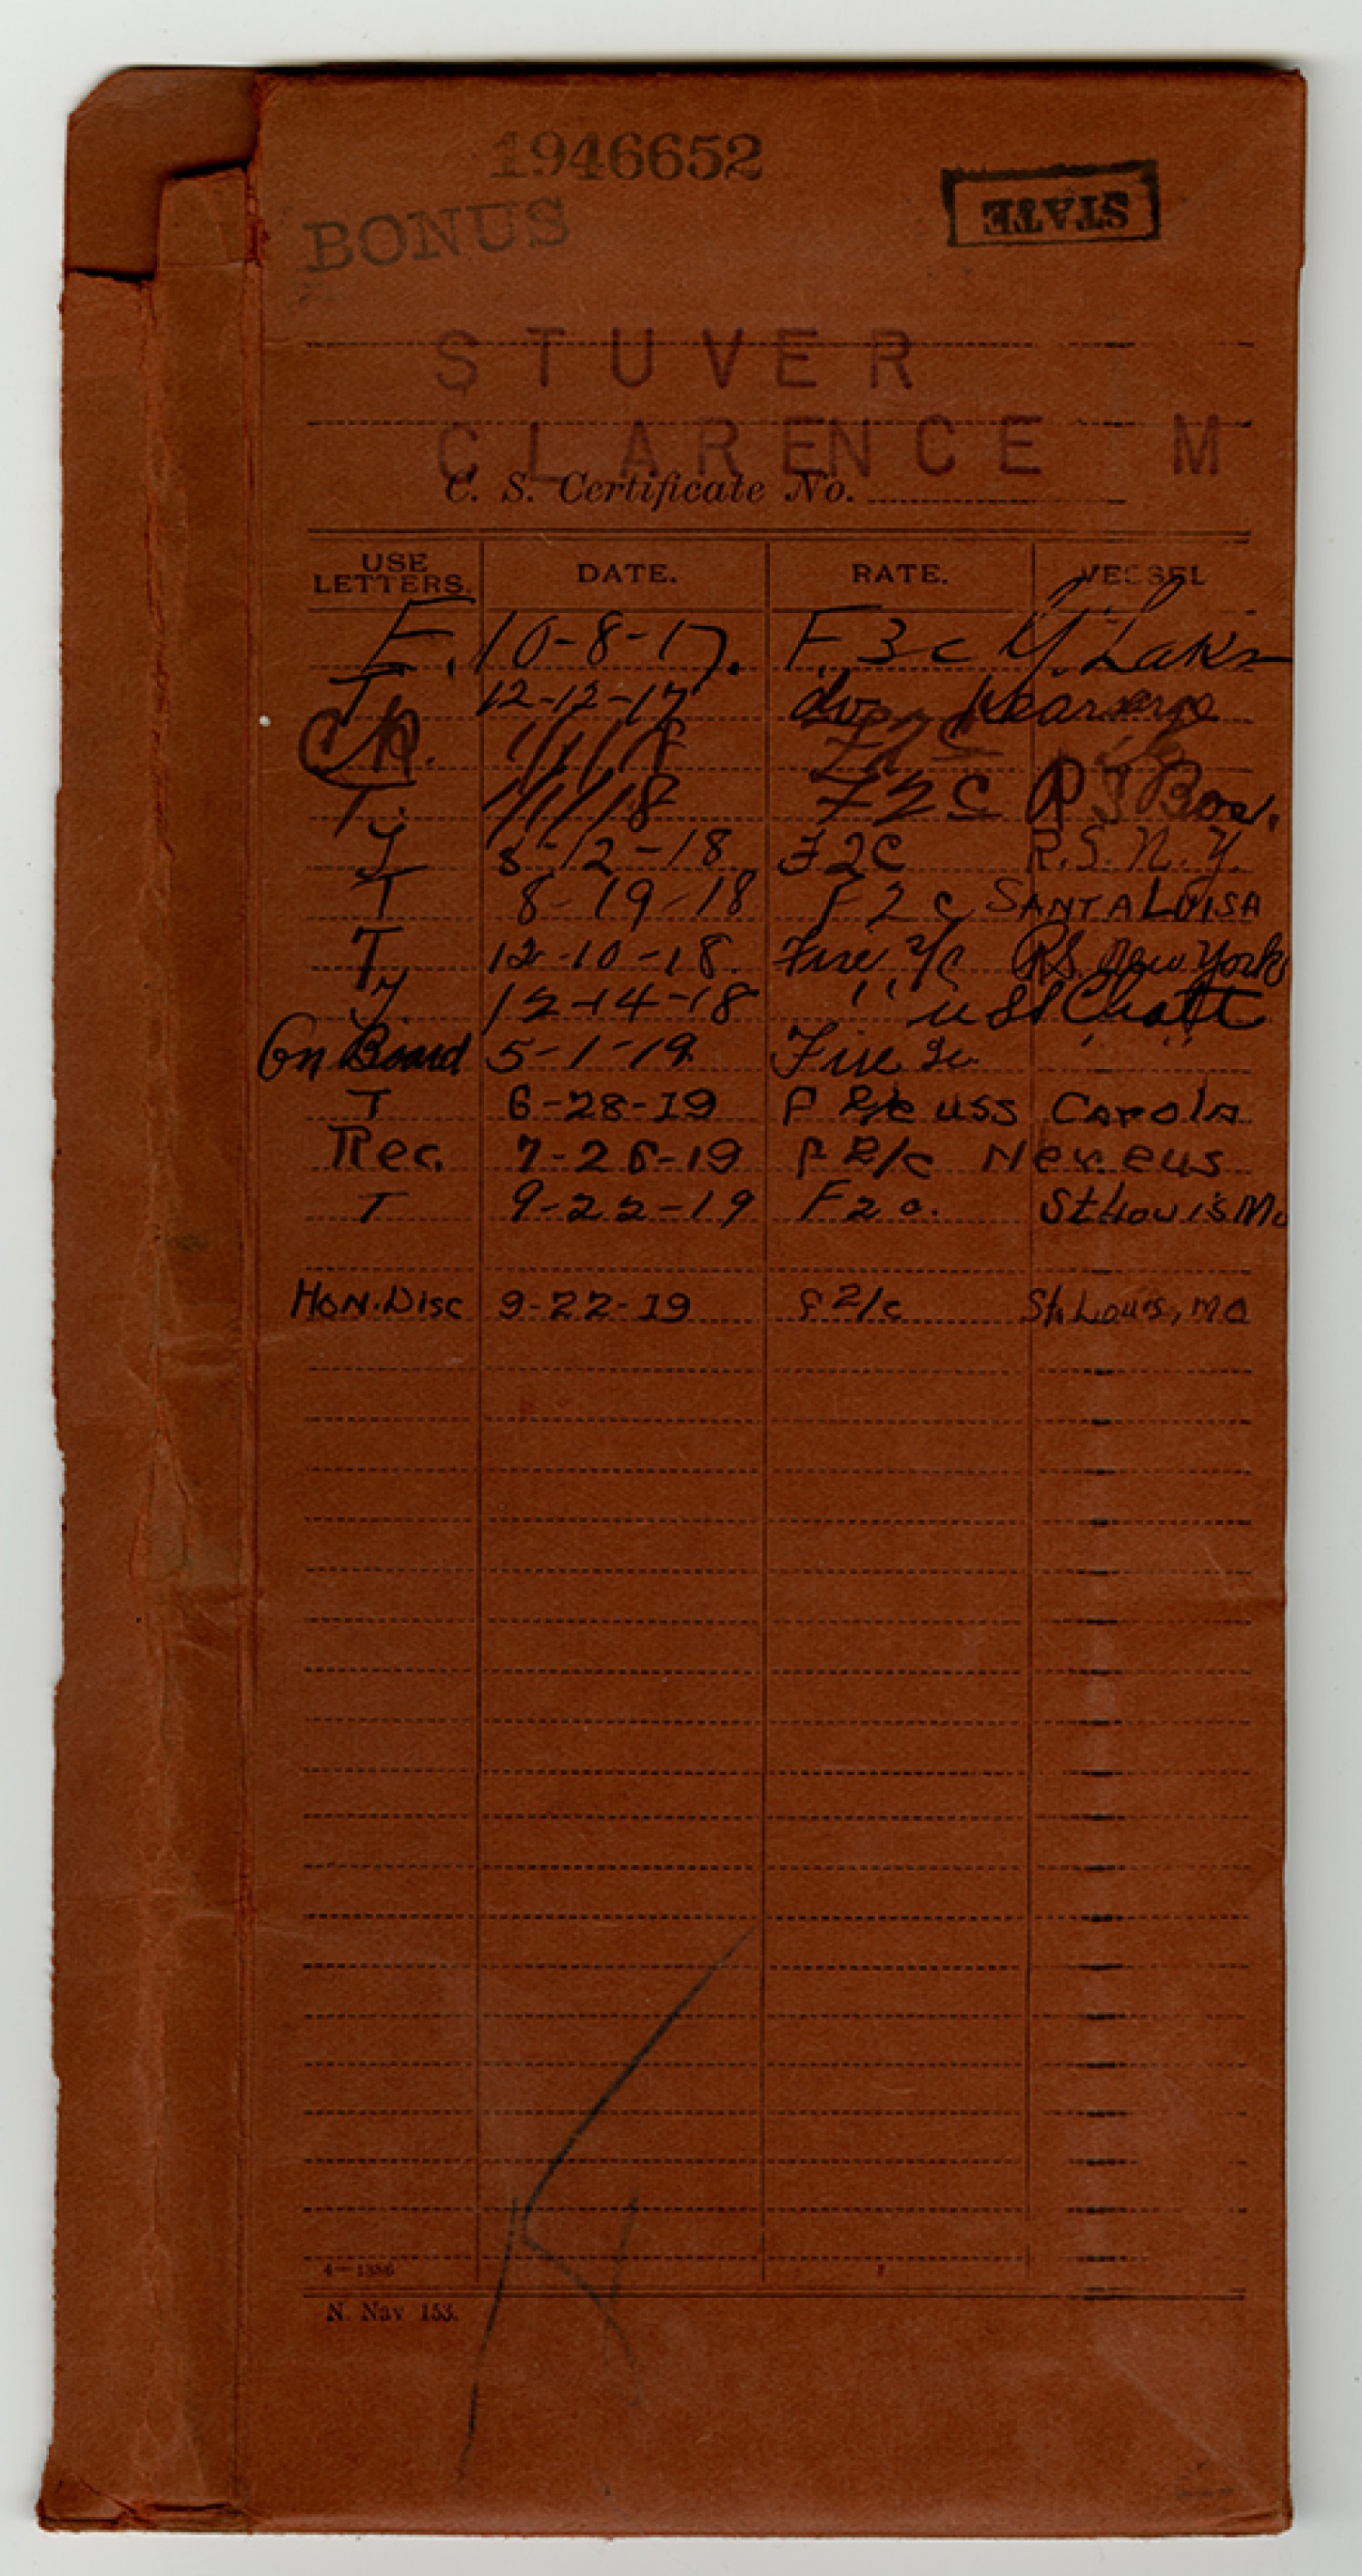 1946652
BONUS
STATE
STUVER
CLARENCE M
C. S. Certificate No.
USE LETTERS. DATE. RATE. VESSEL
E. 10-8-17. F. 3c G. Laks
T. 12-12-17 do Kearsarge
Ch. 1/1/18 F2C
T. 1/1/18 F2C R S Bos.
T 8-12-18 F2C R.S. N.Y.
T 8-19-18 F2C SANTA LUISA
T 12-10-18. Fire 2/c RS. New York
T. 12-14-18 " USS Chatt
On Board 5-1-19 Fire 2c. " "
T 6-28-19 F 2/c USS Carola
Rec. 7-26-19 F 2/c Nereus
T 9-22-19 F2c. St Louis Mo
HON. Disc 9-22-19 F 2/c St. Louis, MO
4-1386
N. Nav 153.